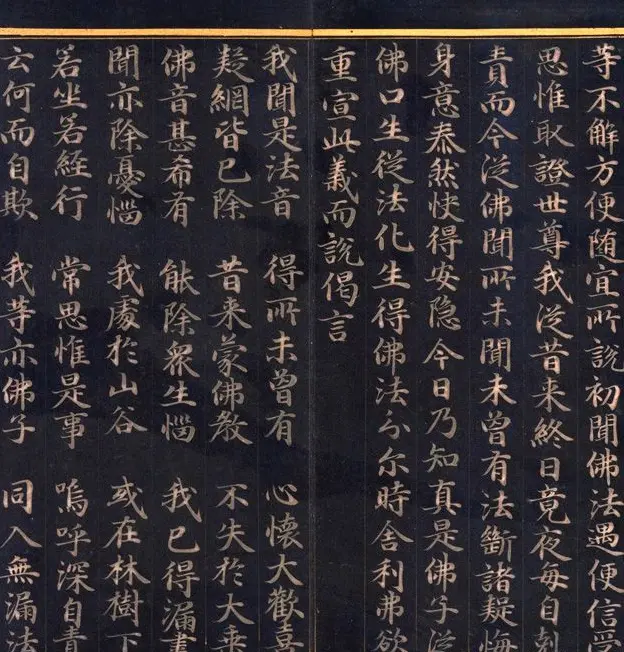 等不解方便随宜所說初聞佛法遇便信受
思惟取證世尊我從昔来終日竟夜每自剋
責而今從佛聞所未聞未曾有法斷諸疑悔
身意泰然快得安隐今日乃知真是佛子從
佛口生從法化生得佛法分尔時舍利弗欲
重宣此義而說偈言
我聞是法音 得所未曾有 心懷大歡喜
疑網皆已除 昔来蒙佛教 不失於大乘
佛音甚希有 能除衆生惱 我已得漏盡
聞亦除憂惱 我處於山谷 或在林樹下
若坐若經行 常思惟是事 嗚呼深自責
云何而自欺 我等亦佛子 同入無漏法